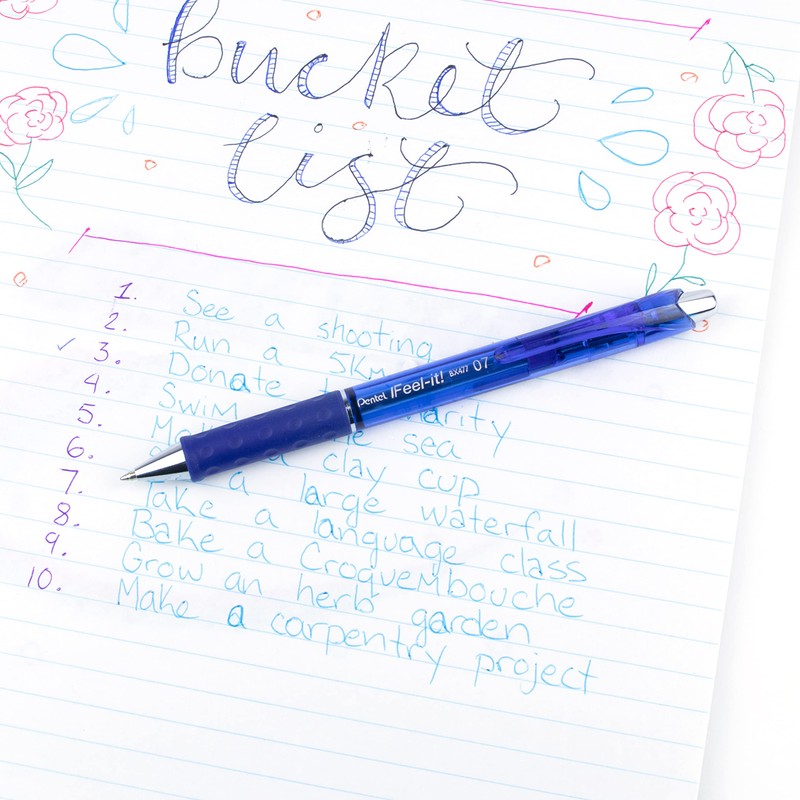 bucket
list
1. See a shooting
2. Run a 5Km
✓ 3. Donate
4. Swim sea
5. clay cup
6. a large waterfall
7. Take a language class
8. Bake a Croquembouche
9. Grow an herb garden
10. Make a carpentry project
Pentel IFeel-it! BX477 07